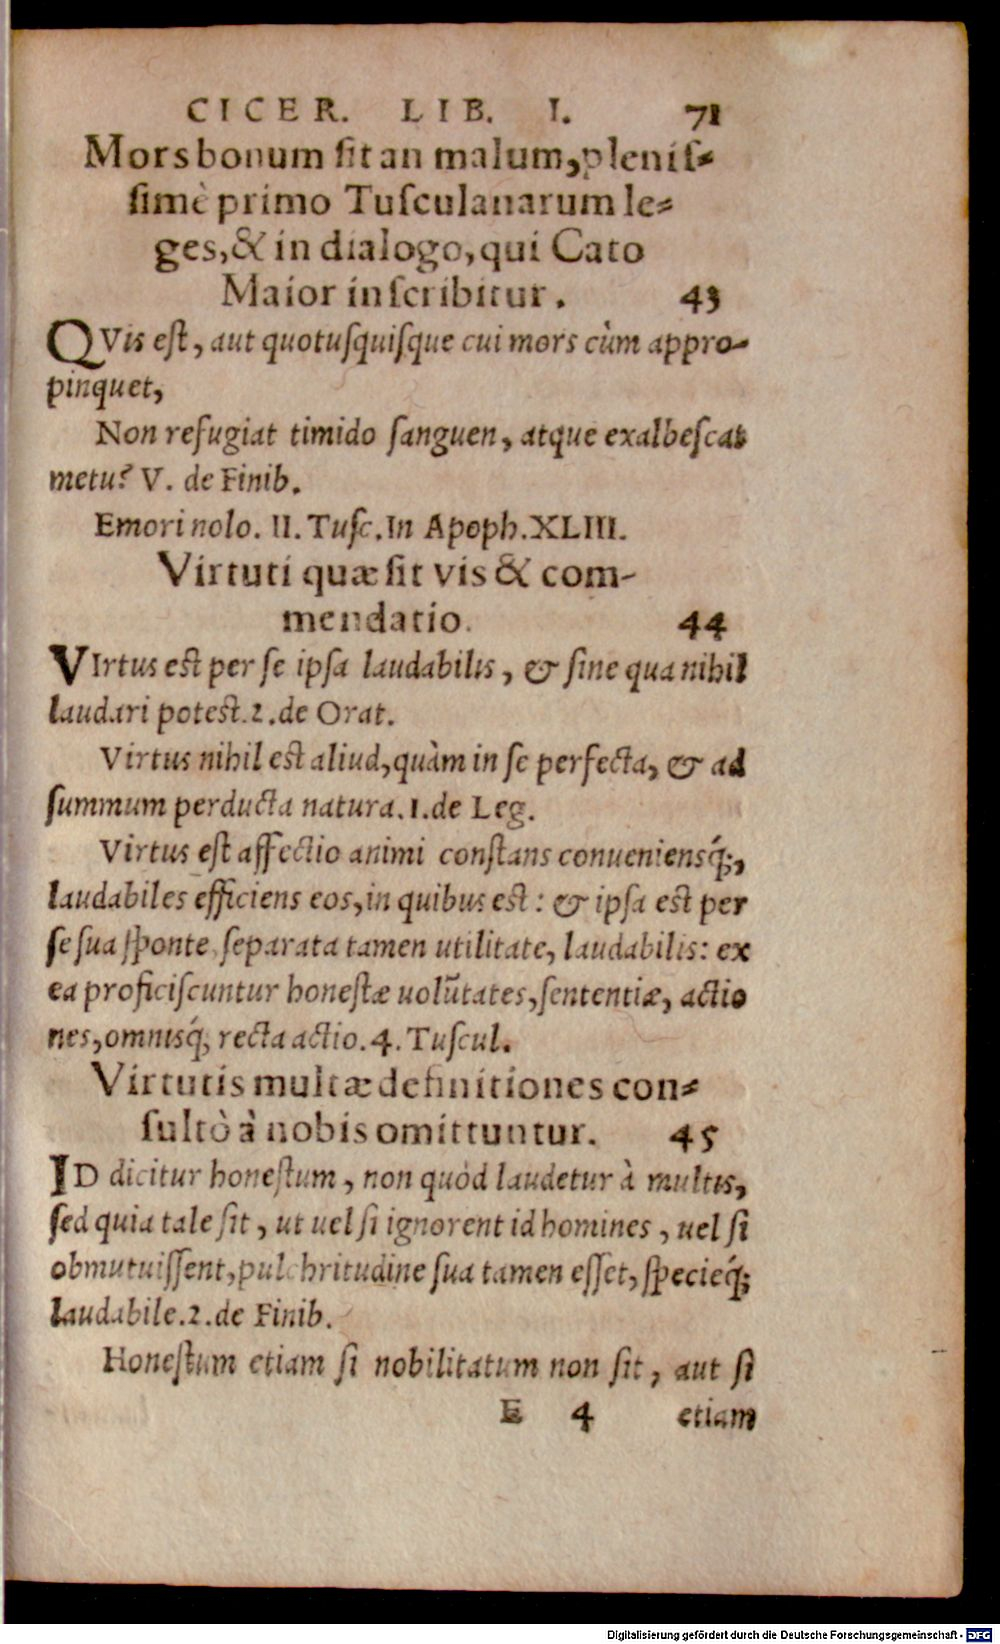 CICER. LIB. I. 71
Mors bonum ſit an malum, pleniſ-
ſimè primo Tuſculanarum le-
ges, & in dialogo, qui Cato
Maior inſcribitur. 43
QVis eſt, aut quotuſquiſque cui mors cùm appro-
pinquet,
Non refugiat timido ſanguen, atque exalbeſcat
metu? V. de Finib.
Emori nolo. II. Tuſc. In Apoph. XLIII.
Virtuti quæ ſit vis & com-
mendatio. 44
VIrtus est per ſe ipſa laudabilis, & ſine qua nihil
laudari potest. 2. de Orat.
Virtus nihil est aliud, quàm in ſe perfecta, & ad
ſummum perducta natura. 1. de Leg.
Virtus eſt affectio animi conſtans conueniensq́;,
laudabiles efficiens eos, in quibus est: & ipſa est per
ſe ſua ſponte, ſeparata tamen utilitate, laudabilis: ex
ea proficiſcuntur honeſtæ uolūtates, ſententiæ, actio
nes, omnisq́; recta actio. 4. Tuſcul.
Virtutis multæ definitiones con-
ſultò à nobis omittuntur. 45
ID dicitur honeſtum, non quòd laudetur à multis,
ſed quia tale ſit, ut uel ſi ignorent id homines, uel ſi
obmutuiſſent, pulchritudine ſua tamen eſſet, ſpecieq́;
laudabile. 2. de Finib.
Honeſtum etiam ſi nobilitatum non ſit, aut ſi
E 4 etiam
Digitalisierung gefördert durch die Deutsche Forschungsgemeinschaft - DFG